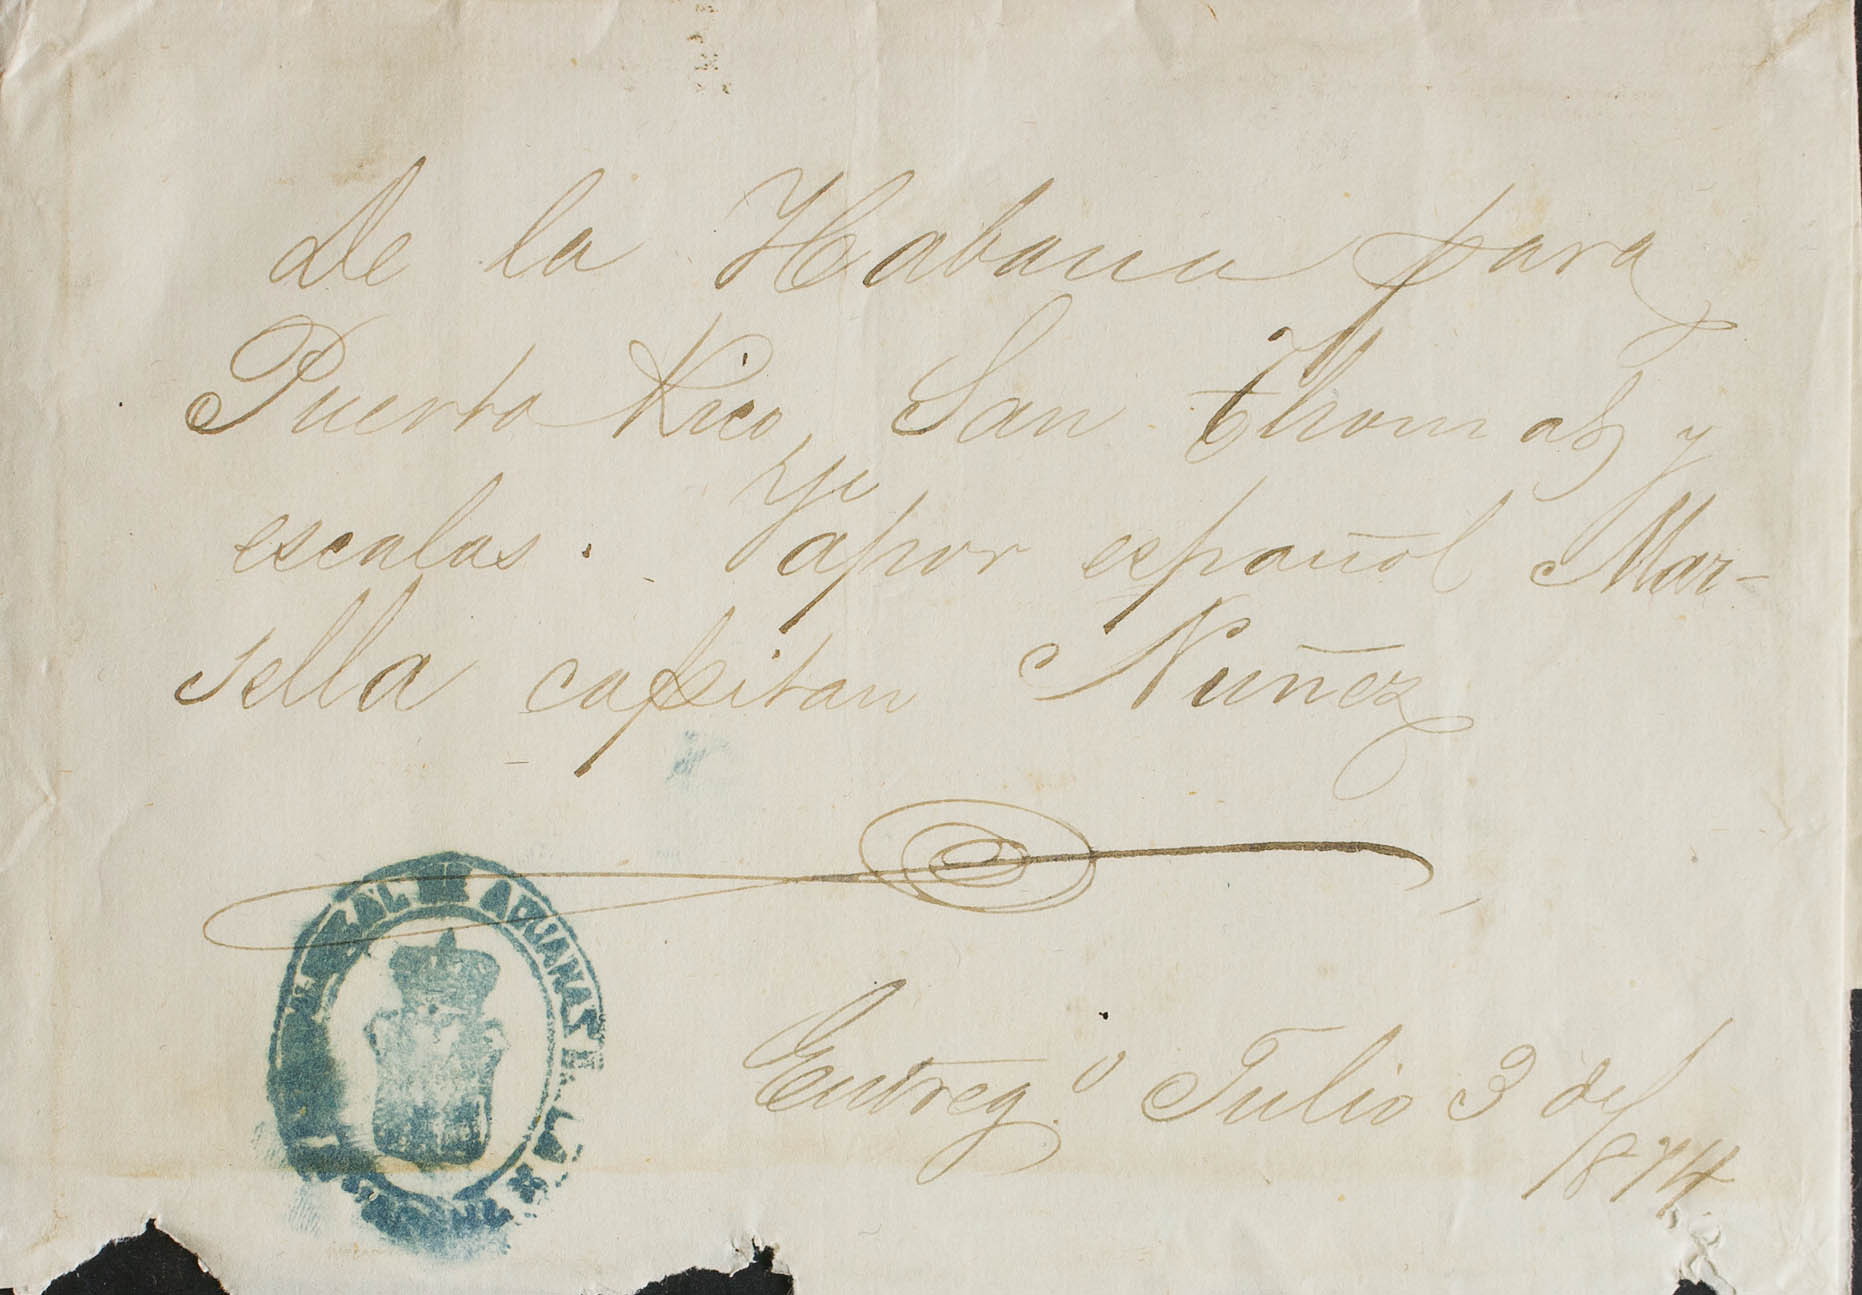 De la Habana para
Puerto Rico, San Thomas y
escalas. Vapor español Mar-
sella capitan Nuñez
Entreg.º Julio 3 de
1874
ADUANAS